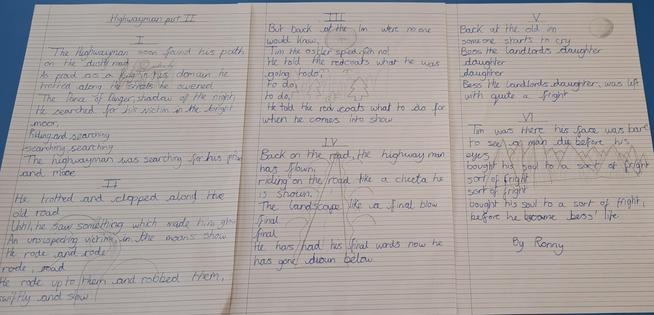 Highwayman part II
I
The Highwayman soon found his path
on the dusty road
As proud as a King in his domain he
trotted along the streets he owened
The Prince of Danger, shadow of the night,
He searched for his victim in the bright
moon,
Riding and searching
searching, searching
The highwayman was searching for his prize
and more
II
He trotted and clopped along the
old road
Until, he saw something which made him glow
An unsuspecting victim, in the moons show
He rode and rode
rode, road
He rode up to them and robbed them,
swiftly and slow.
III
But back at the Inn were no one
would know,
Tim the ostler spied
He told the redcoats what he was
going to do,
to do,
to do,
He told the red coats what to do for
when he comes into show
IV
Back on the road, the highway man
has flown,
riding on the road like a cheeta he
is shown.
The landscape like a final blow
final
final
He hars had his final words now he
has gone down below
V
Back at the old inn
someone starts to cry
Bess the landlords daughter
daughter
daughter
Bess the landlords daughter, was left
with quite a fright
VI
Tim was there his face was bare
to see a man die before his
eyes
bought his soul to a sort of fright
sort of fright
sort of fright
bought his soul to a sort of fright,
before he became bess' life
By Ronny